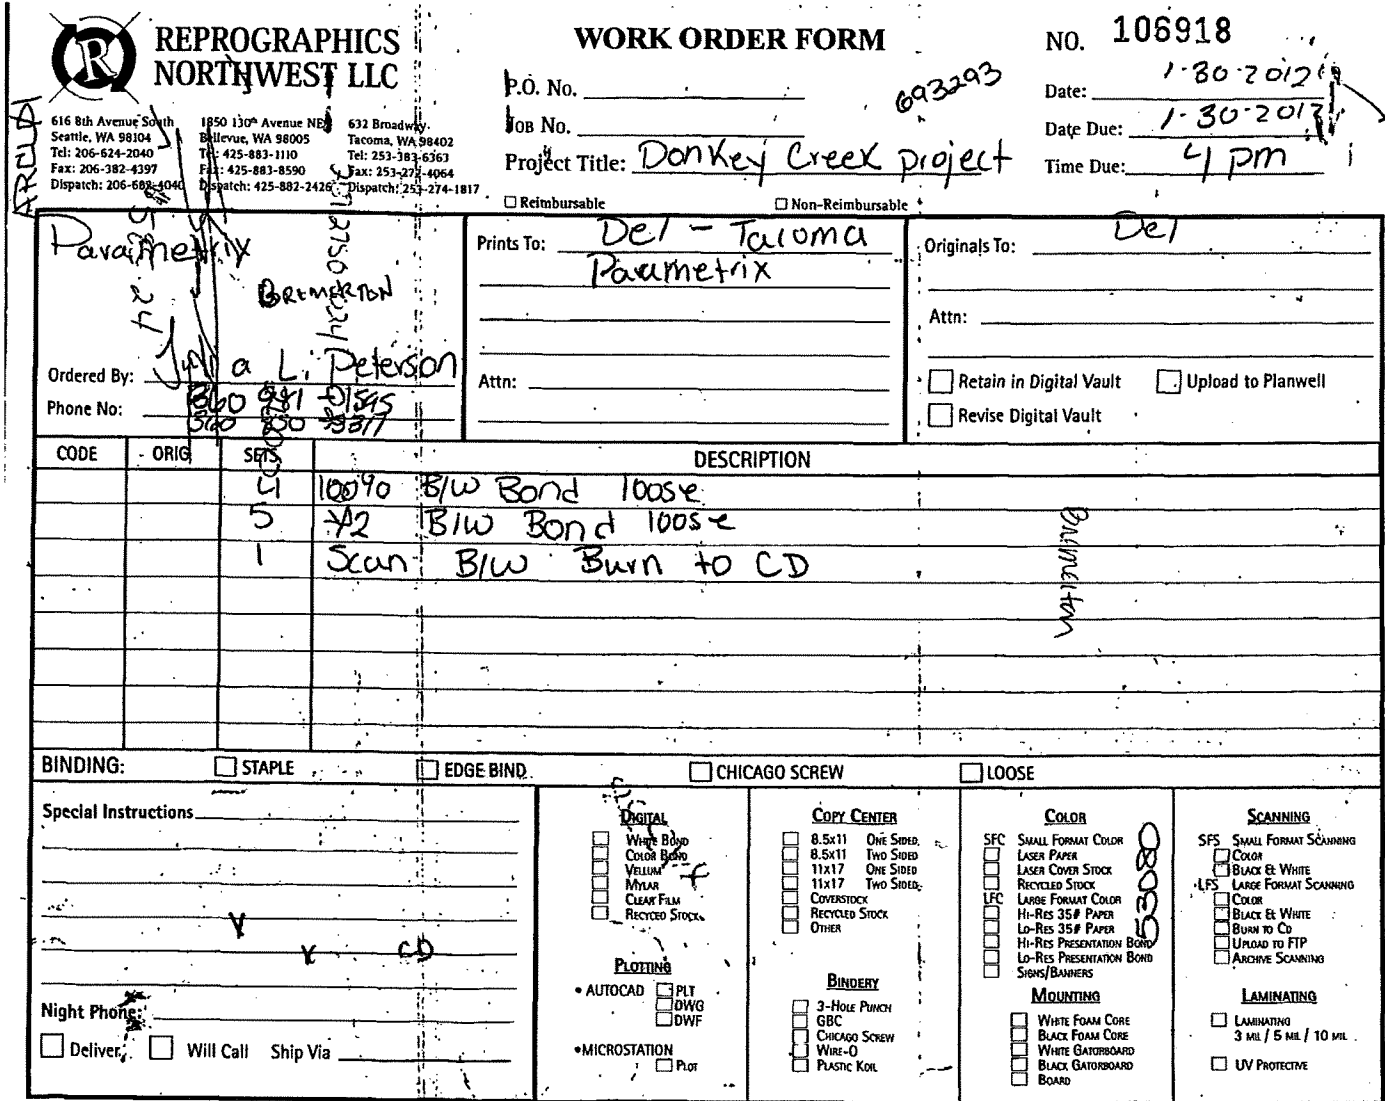 REPROGRAPHICS
NORTHWEST LLC
WORK ORDER FORM
NO. 106918
616 8th Avenue South
Seattle, WA 98104
Tel: 206-624-2040
Fax: 206-382-4397
Dispatch: 206-682-4040
1850 130th Avenue NE
Bellevue, WA 98005
Tel: 425-883-1110
Fax: 425-883-8590
Dispatch: 425-882-2426
632 Broadway
Tacoma, WA 98402
Tel: 253-383-6363
Fax: 253-272-4064
Dispatch: 253-274-1817
P.O. No.
693293
Job No.
Project Title: Donkey Creek project
Reimbursable Non-Reimbursable
Date: 1-30-2012
Date Due: 1-30-2012
Time Due: 4 pm
Parametrix
BREMERTON
Ordered By: L. Peterson
Phone No:
Prints To: Del - Tacoma
Parametrix
Attn:
Originals To: Del
Attn:
Retain in Digital Vault Upload to Planwell
Revise Digital Vault
CODE ORIG SETS DESCRIPTION
4 100% B/W Bond loose
5 1/2 B/W Bond loose
1 Scan B/W Burn to CD
Bremerton
BINDING: STAPLE EDGE BIND CHICAGO SCREW LOOSE
Special Instructions
CD
Night Phone:
Deliver Will Call Ship Via
DIGITAL
WHITE BOND
COLOR BOND
VELLUM
MYLAR
CLEAR FILM
RECYCED STOCK
PLOTTING
• AUTOCAD PLT
DWG
DWF
•MICROSTATION
PLOT
COPY CENTER
8.5x11 ONE SIDED
8.5x11 TWO SIDED
11x17 ONE SIDED
11x17 TWO SIDED
COVERSTOCK
RECYCLED STOCK
OTHER
BINDERY
3-HOLE PUNCH
GBC
CHICAGO SCREW
WIRE-O
PLASTIC KOIL
COLOR
SFC SMALL FORMAT COLOR
LASER PAPER
LASER COVER STOCK
RECYCLED STOCK
LFC LARGE FORMAT COLOR
HI-RES 35# PAPER
LO-RES 35# PAPER
HI-RES PRESENTATION BOND
LO-RES PRESENTATION BOND
SIGNS/BANNERS
53080
MOUNTING
WHITE FOAM CORE
BLACK FOAM CORE
WHITE GATORBOARD
BLACK GATORBOARD
BOARD
SCANNING
SFS SMALL FORMAT SCANNING
COLOR
BLACK & WHITE
LFS LARGE FORMAT SCANNING
COLOR
BLACK & WHITE
BURN TO CD
UPLOAD TO FTP
ARCHIVE SCANNING
LAMINATING
LAMINATING
3 MIL / 5 MIL / 10 MIL
UV PROTECTIVE